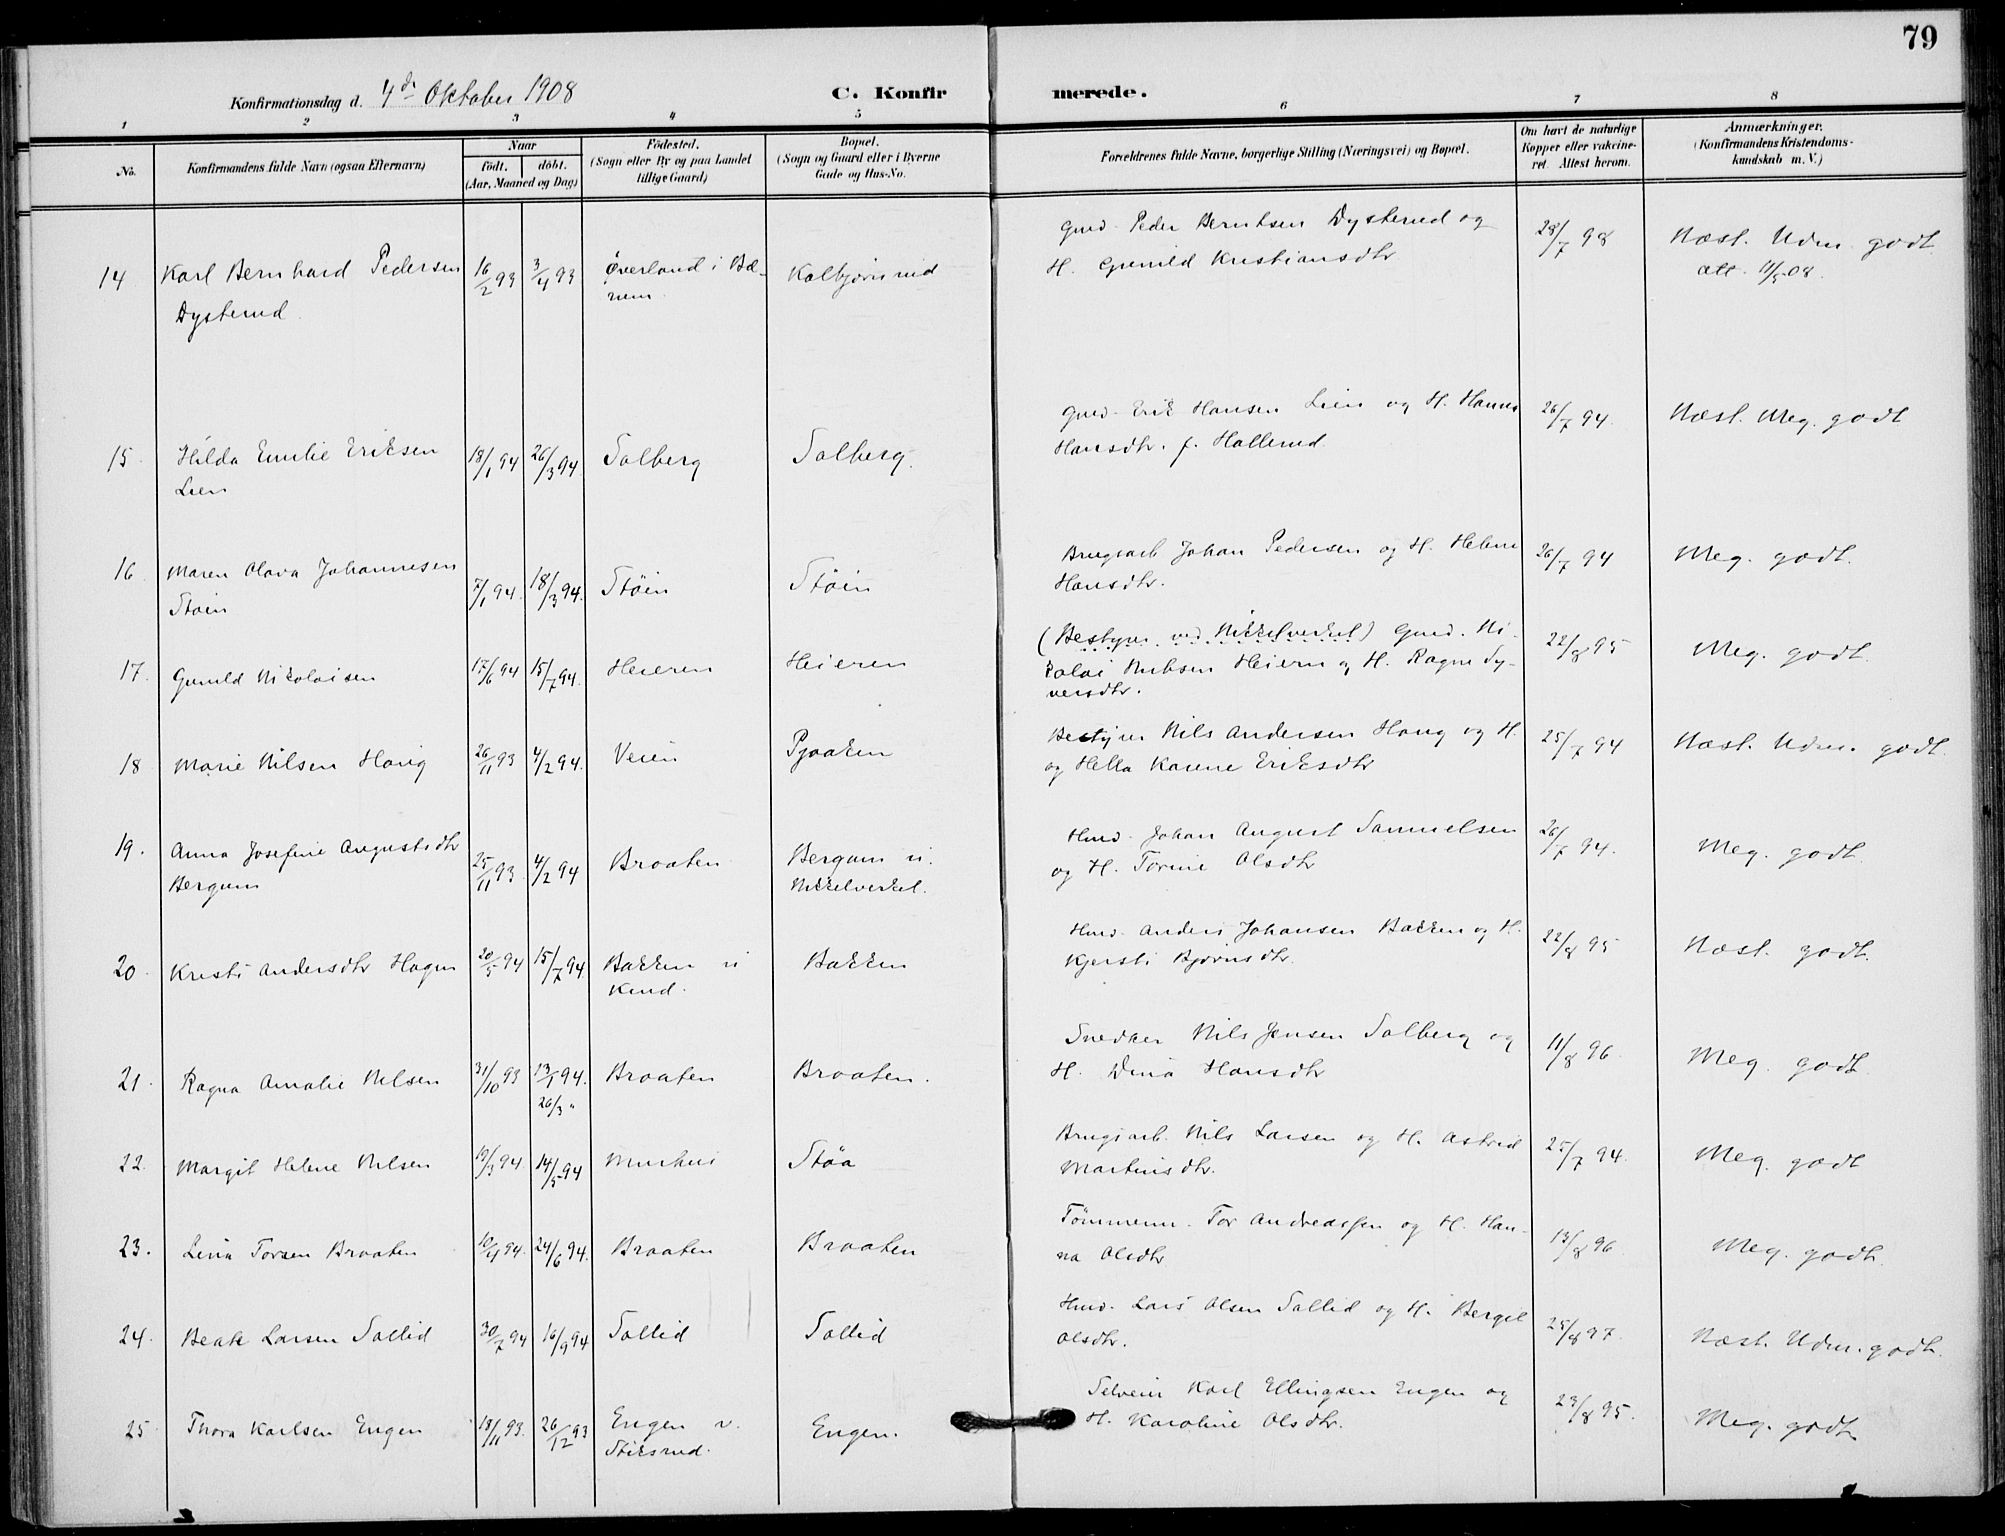 79
Konfirmationsdag d. 4de Oktober 1908
C. Konfirmerede.
1 2 3 4 5 6 7 8
No.
Konfirmandens fulde Navn (ogsaa Efternavn)
Naar
født. døbt.
(Aar, Maaned og Dag)
Fødested.
(Sogn eller By og paa Landet
tillige Gaard)
Bopæl.
(Sogn og Gaard eller i Byerne
Gade og Hus-No.
Forældrenes fulde Navne, borgerlige Stilling (Næringsvei) og Bopæl.
Om havt de naturlige
Kopper eller vakcine-
ret. Attest herom.
Anmærkninger.
(Konfirmandens Kristendoms-
kundskab m. V.)
14 Karl Bernhard Pedersen
Dysterud
16/2 93 3/4 93 Øverland i Bæ-
rum. Kolbjørnrud
Gmd. Peder Berntsen Dysterud og
H. Gunild Kristiansdtr
28/7 98 Næst. Udm. godt
att. 11/5 08.
15. Hilda Emilie Eriksen
Lien
18/1 94 26/3 94 Solberg Solberg.
Gmd. Erik Hansen Lien og H. Hanna
Hansdtr. f. Hallerud
26/7 94. Næst. Meg. godt
16. Maren Olava Johannesen
Støin
7/1 94. 18/3 94. Støin Støin
Brugsarb Johan Pedersen og H. Helene
Hansdtr.
26/7 94 Meg. godt.
17. Gunild Nikolaisen
17/6 94 15/7 94. Heieren Heieren
(Bestyrer ved Nikkelverket) Gmd. Ni-
kolai Nubsen Heiern og H. Ragne Sy-
versdtr.
22/8 95 Meg. godt.
18 Marie Nilsen Haug
26/11 93 4/2 94. Veien Pjaaken
Bestyrer Nils Andersen Haug og H.
og Hella Karine Eriksdtr
25/7 94 Næst. Udm. godt.
19. Anna Josefine Augustsdtr
Bergum
25/11 93. 4/2 94 Braaten Bergum u.
Nikkelverket.
Hmd. Johan August Samuelsen
og H. Torine Olsdtr
26/7 94. Meg. godt
20. Kristi Andersdtr Hagen
20/5 94 15/7 94. Bakken u
Kind. Bakken
Hmd. Anders Johansen Bakken og H.
Kjersti Bjørnsdtr.
22/8 95 Næst. godt.
21. Ragna Amalie Nilsen
31/10 93 13/1 94.
26/3 " Braaten Braaten.
Snedker Nils Jensen Solberg og
H. Dina Hansdtr
11/8 96. Meg. godt.
22. Margit Helene Nilsen
19/3 94. 14/5 94 Murhus Støa
Brugsarb. Nils Larsen og H. Astrid
Martinsdtr.
25/7 94. Meg. godt
23. Lina Torsen Braaten
10/4 94. 24/6 94. Braaten Braaten
Tømmerm. Tor Andreassen og H. Han-
na Olsdtr
13/8 96. Meg. godt.
24. Beate Larsen Sollid
30/7 94 16/9 94 Sollid Sollid
Hmd. Lars Olsen Sollid og H. Bergit
Olsdtr.
25/8 97. Næst. Udm. godt.
25 Thora Karlsen Engen
13/11 93. 26/12 93 Engen v.
Stiksrud. Engen.
Selveier Karl Ellingsen Engen og
H. Karoline Olsdtr.
23/8 95. Meg. godt.